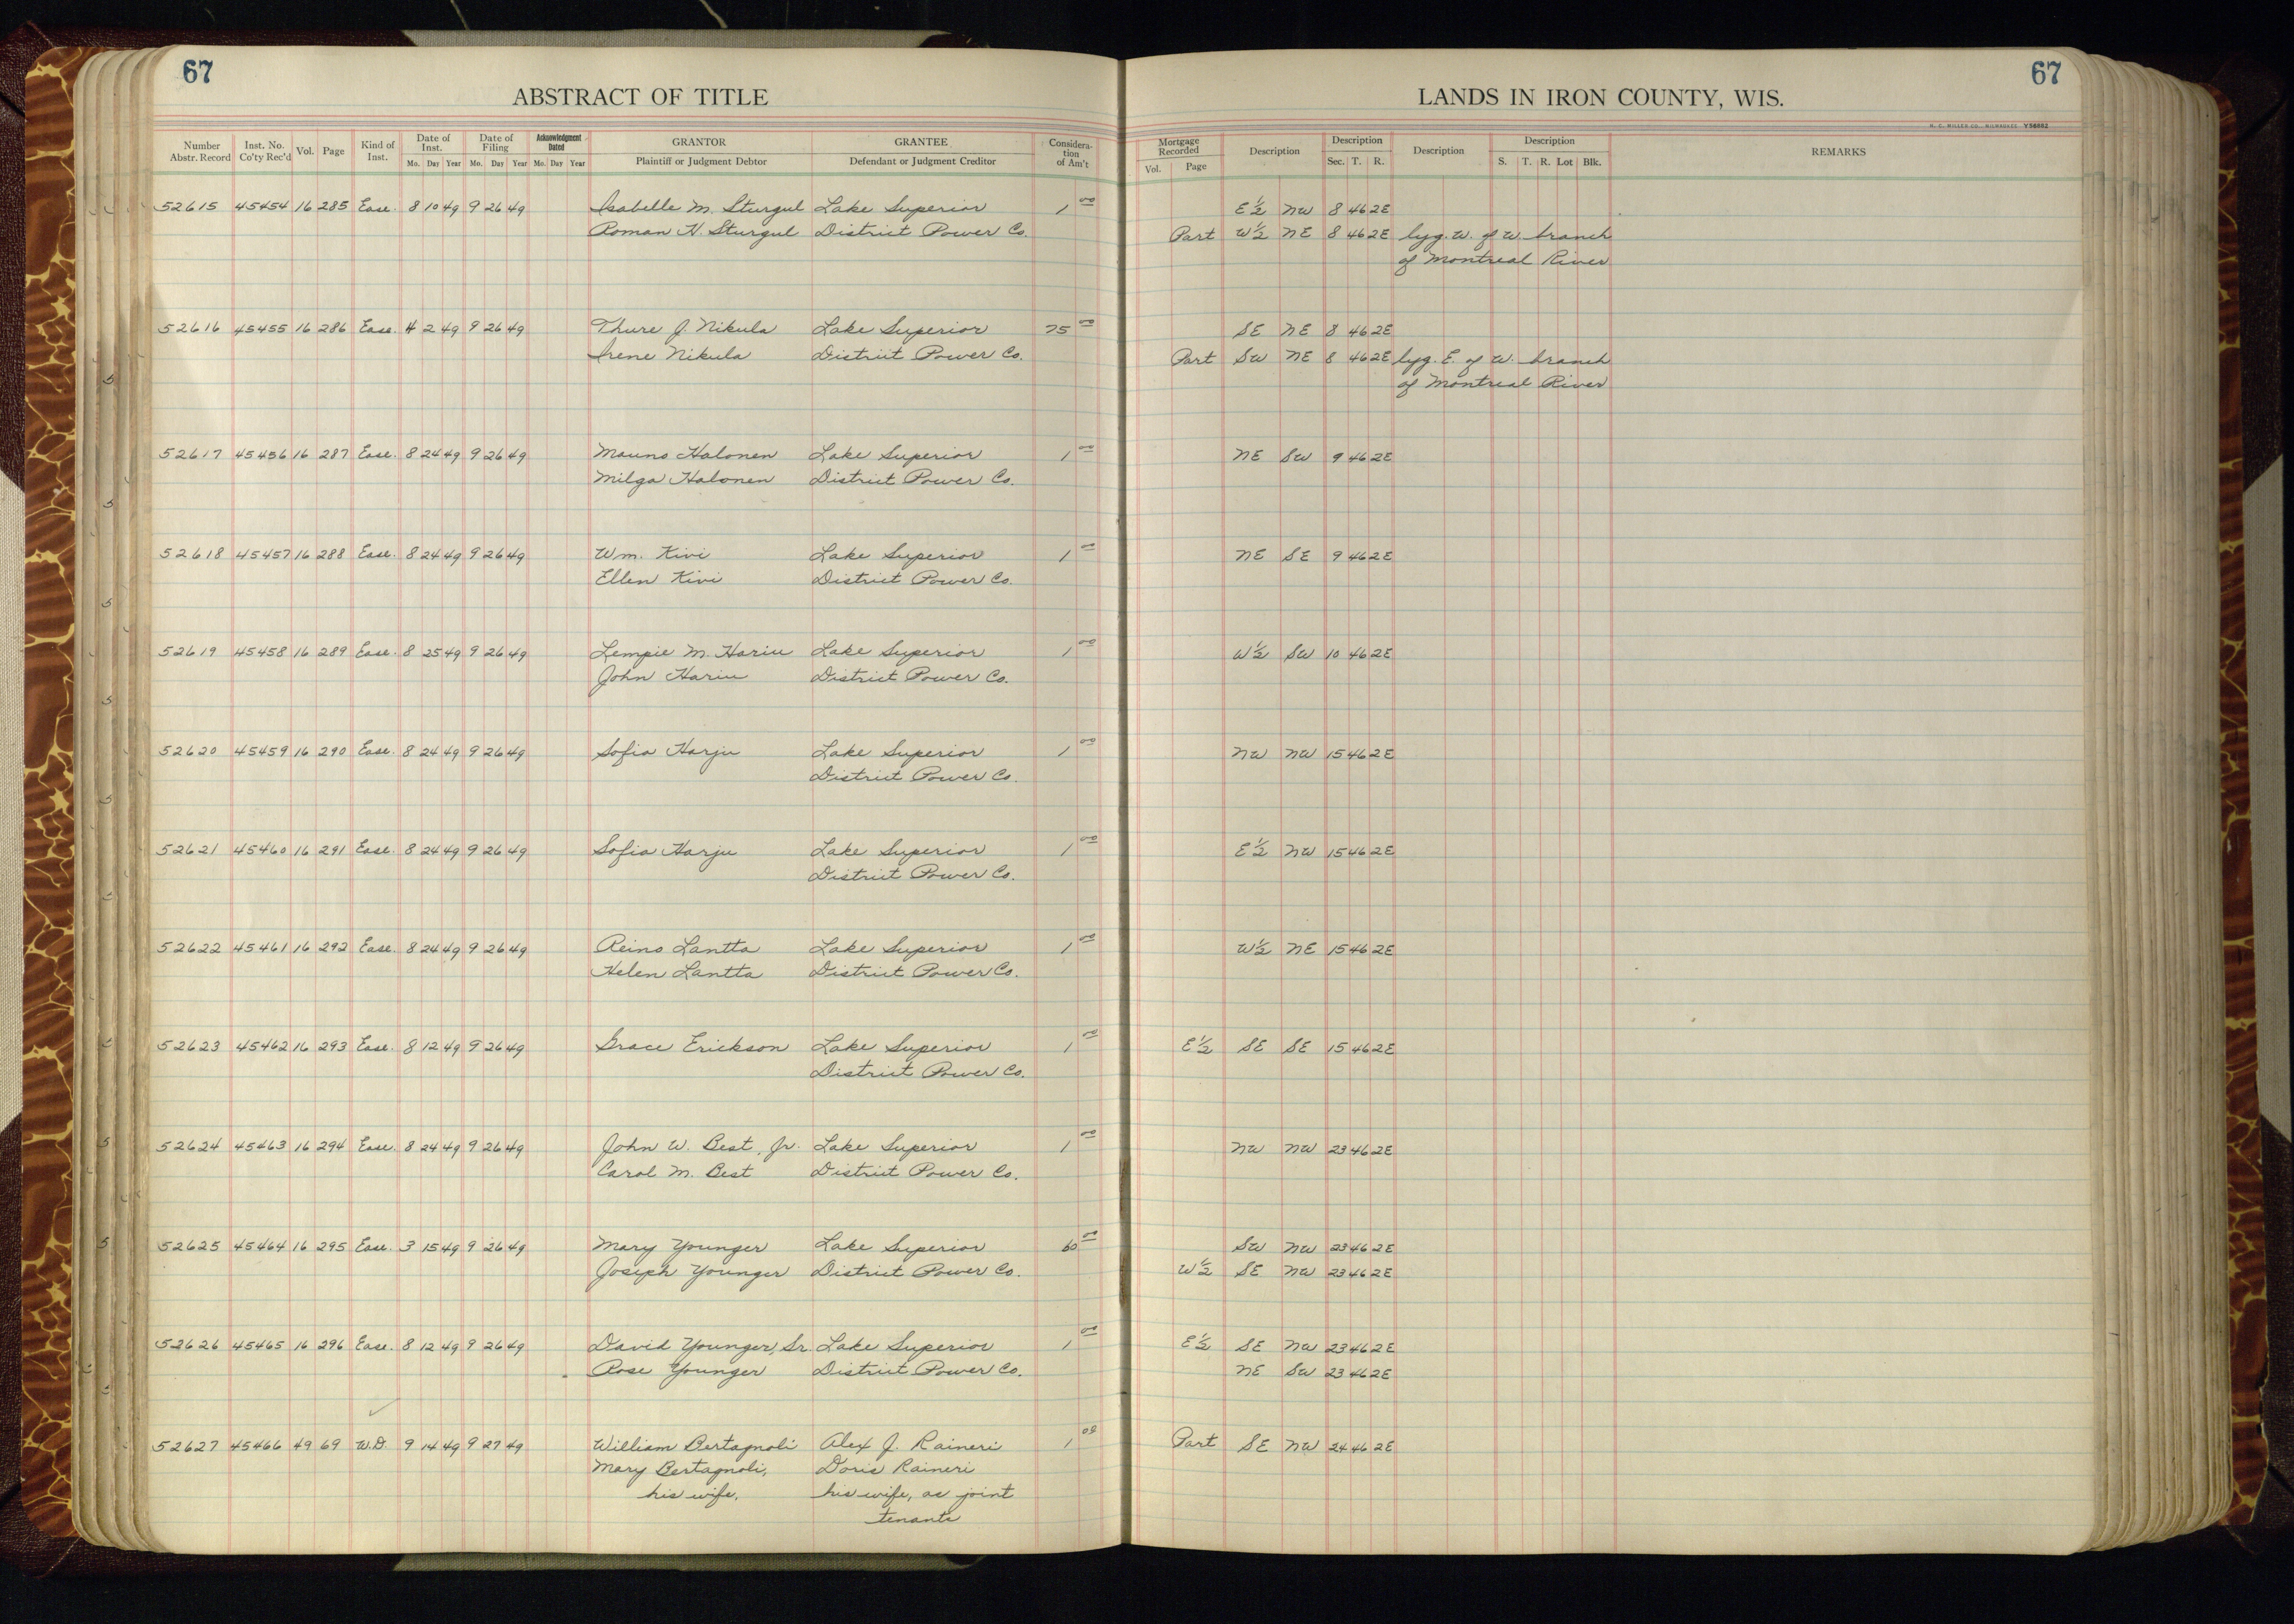 67
67
ABSTRACT OF TITLE
LANDS IN IRON COUNTY, WIS.
H. C. MILLER CO., MILWAUKEE Y58682
Number Abstr. Record Inst. No. Co'ty Rec'd Vol. Page Kind of Inst. Date of Inst. Mo. Day Year Date of Filing Mo. Day Year Acknowledgment Dated Mo. Day Year GRANTOR Plaintiff or Judgment Debtor GRANTEE Defendant or Judgment Creditor Considera-tion of Am't Mortgage Recorded Vol. Page Description Description Sec. T. R. Description Description S. T. R. Lot Blk. REMARKS
52615 45454 16 285 Ease. 8 10 49 9 26 49 Isabelle M. Sturgul Lake Superior 1 00 E½ NW 8 46 2E
Roman H. Sturgul District Power Co. Part W½ NE 8 46 2E lyg. W. of W. branch
of Montreal River
52616 45455 16 286 Ease. 4 2 49 9 26 49 Thure J. Nikula Lake Superior 75 00 SE NE 8 46 2E
Irene Nikula District Power Co. Part SW NE 8 46 2E lyg. E. of W. branch
of Montreal River
52617 45456 16 287 Ease. 8 24 49 9 26 49 Mauno Halonen Lake Superior 1 00 NE SW 9 46 2E
Milga Halonen District Power Co.
52618 45457 16 288 Ease. 8 24 49 9 26 49 Wm. Kivi Lake Superior 1 00 NE SE 9 46 2E
Ellen Kivi District Power Co.
52619 45458 16 289 Ease. 8 25 49 9 26 49 Lempie M. Hariu Lake Superior 1 00 W½ SW 10 46 2E
John Hariu District Power Co.
52620 45459 16 290 Ease. 8 24 49 9 26 49 Sofia Harju Lake Superior 1 00 NW NW 15 46 2E
District Power Co.
52621 45460 16 291 Ease. 8 24 49 9 26 49 Sofia Harju Lake Superior 1 00 E½ NW 15 46 2E
District Power Co.
52622 45461 16 292 Ease. 8 24 49 9 26 49 Reino Lantta Lake Superior 1 00 W½ NE 15 46 2E
Helen Lantta District Power Co.
52623 45462 16 293 Ease. 8 12 49 9 26 49 Grace Erickson Lake Superior 1 00 E½ SE SE 15 46 2E
District Power Co.
52624 45463 16 294 Ease. 8 24 49 9 26 49 John W. Best, Jr. Lake Superior 1 00 NW NW 23 46 2E
Carol M. Best District Power Co.
52625 45464 16 295 Ease. 3 15 49 9 26 49 Mary Younger Lake Superior 60 00 SW NW 23 46 2E
Joseph Younger District Power Co. W½ SE NW 23 46 2E
52626 45465 16 296 Ease. 8 12 49 9 26 49 David Younger, Sr. Lake Superior 1 00 E½ SE NW 23 46 2E
Rose Younger District Power Co. NE SW 23 46 2E
52627 45466 49 69 W.D. 9 14 49 9 27 49 William Bertagnoli Alex J. Raineri 1 00 Part SE NW 24 46 2E
Mary Bertagnoli, Doris Raineri
his wife, his wife, as joint
tenants